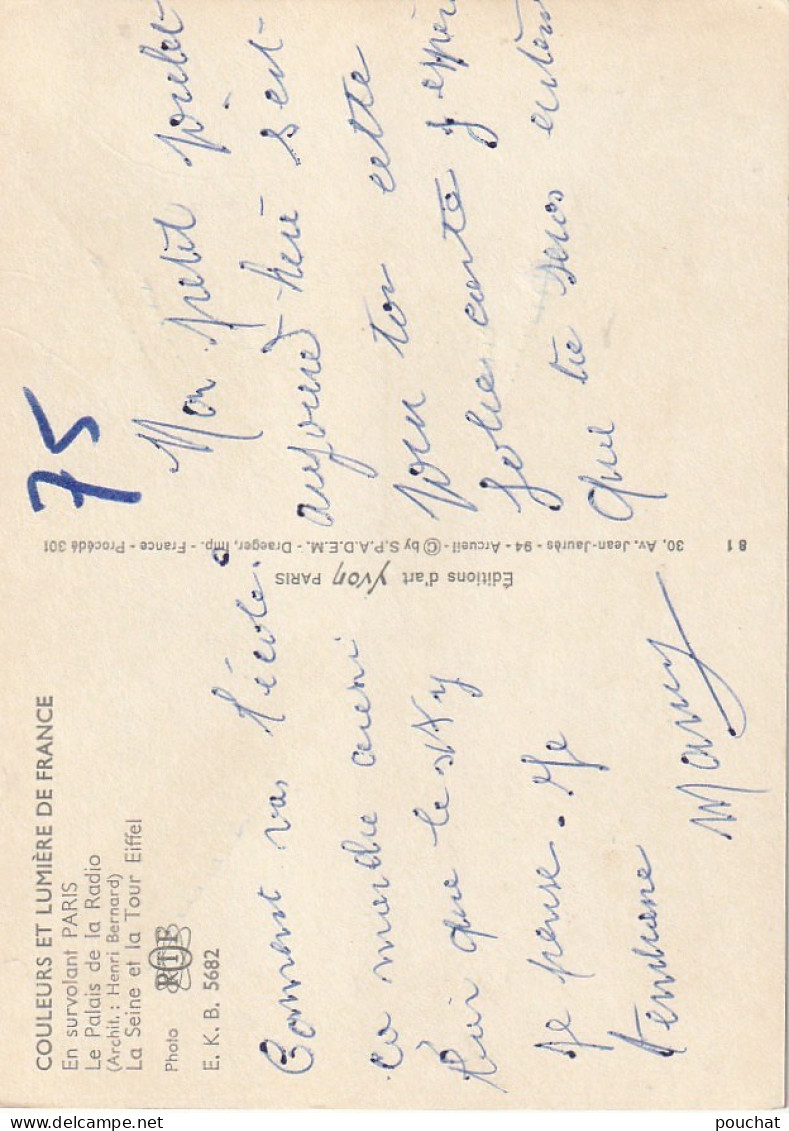 COULEURS ET LUMIÈRE DE FRANCE
En survolant PARIS
Le Palais de la Radio
(Archit. : Henri Bernard)
La Seine et la Tour Eiffel
Photo RTF
E. K. B. 5682
Coment vas l'école.
ca marche ausi
bien que le sky
je pense. Je
t'embrasse
Mamy
Éditions d'art Yvon PARIS
30, Av. Jean-Jaurès - 94 - Arcueil - © by S.P.A.D.E.M. - Draeger, Imp. - France - Procédé 301
81
75
Mon petit poulet
aujourd'hui s'est
pour toi cette
jolie carte j'espère
que tu seras
pouchat